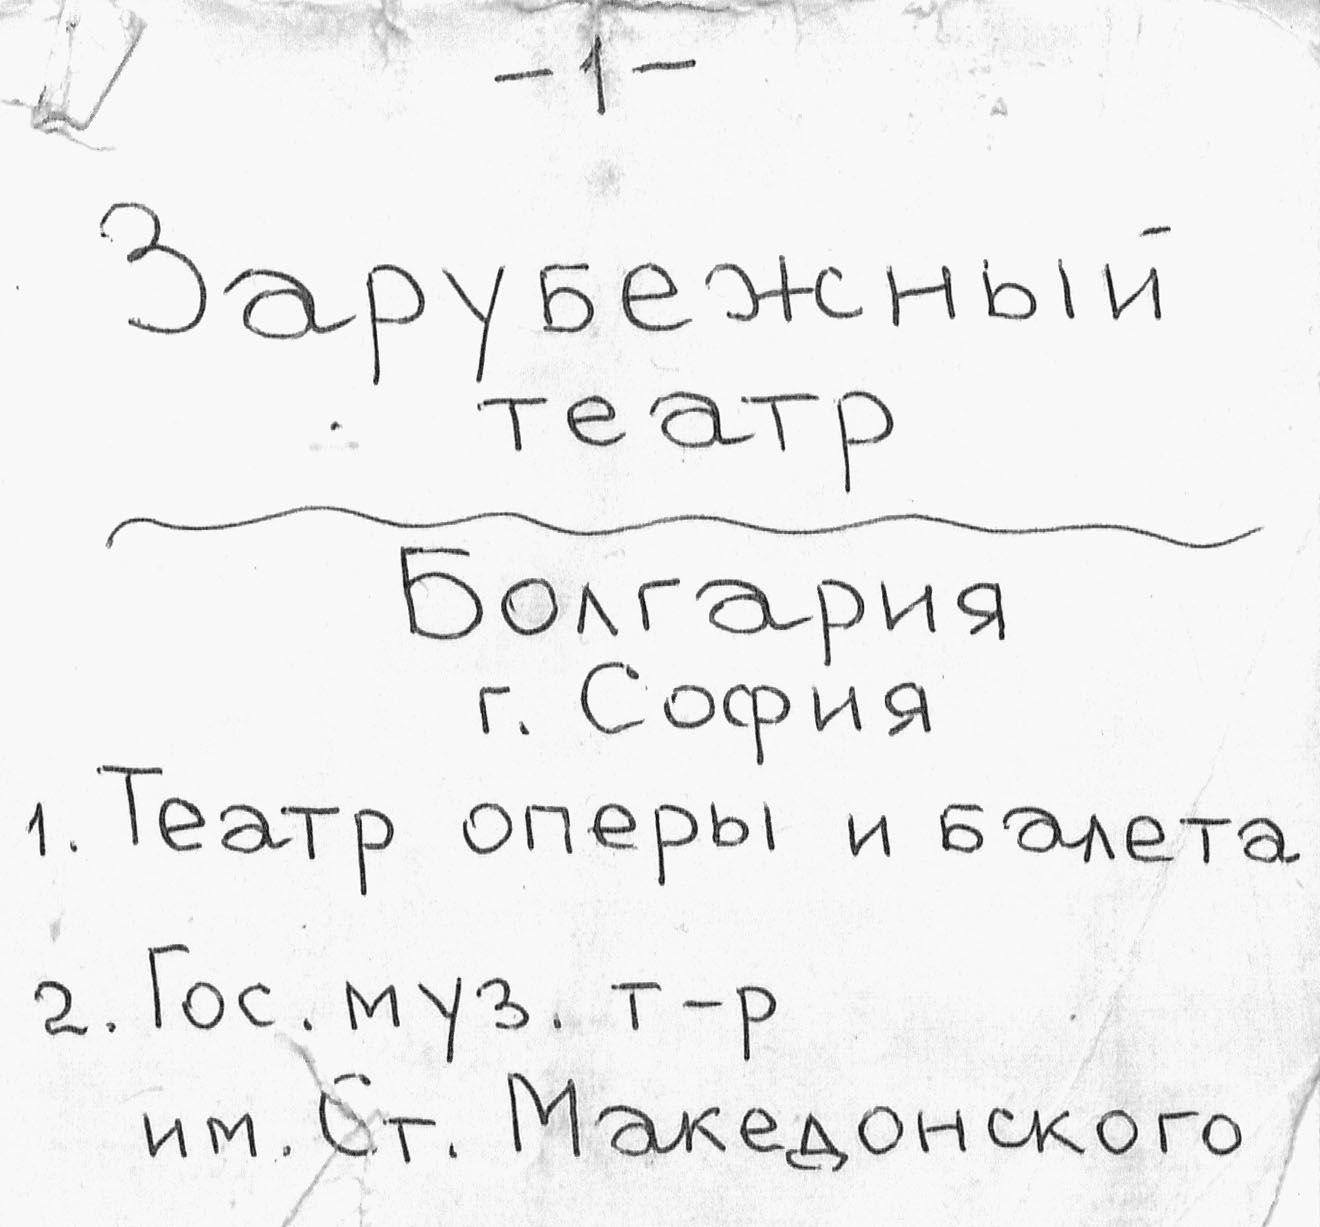 -1-
Зарубежный
театр
Болгария
г. София
1. Театр оперы и балета
2. Гос. муз. т-р
им. Ст. Македонского